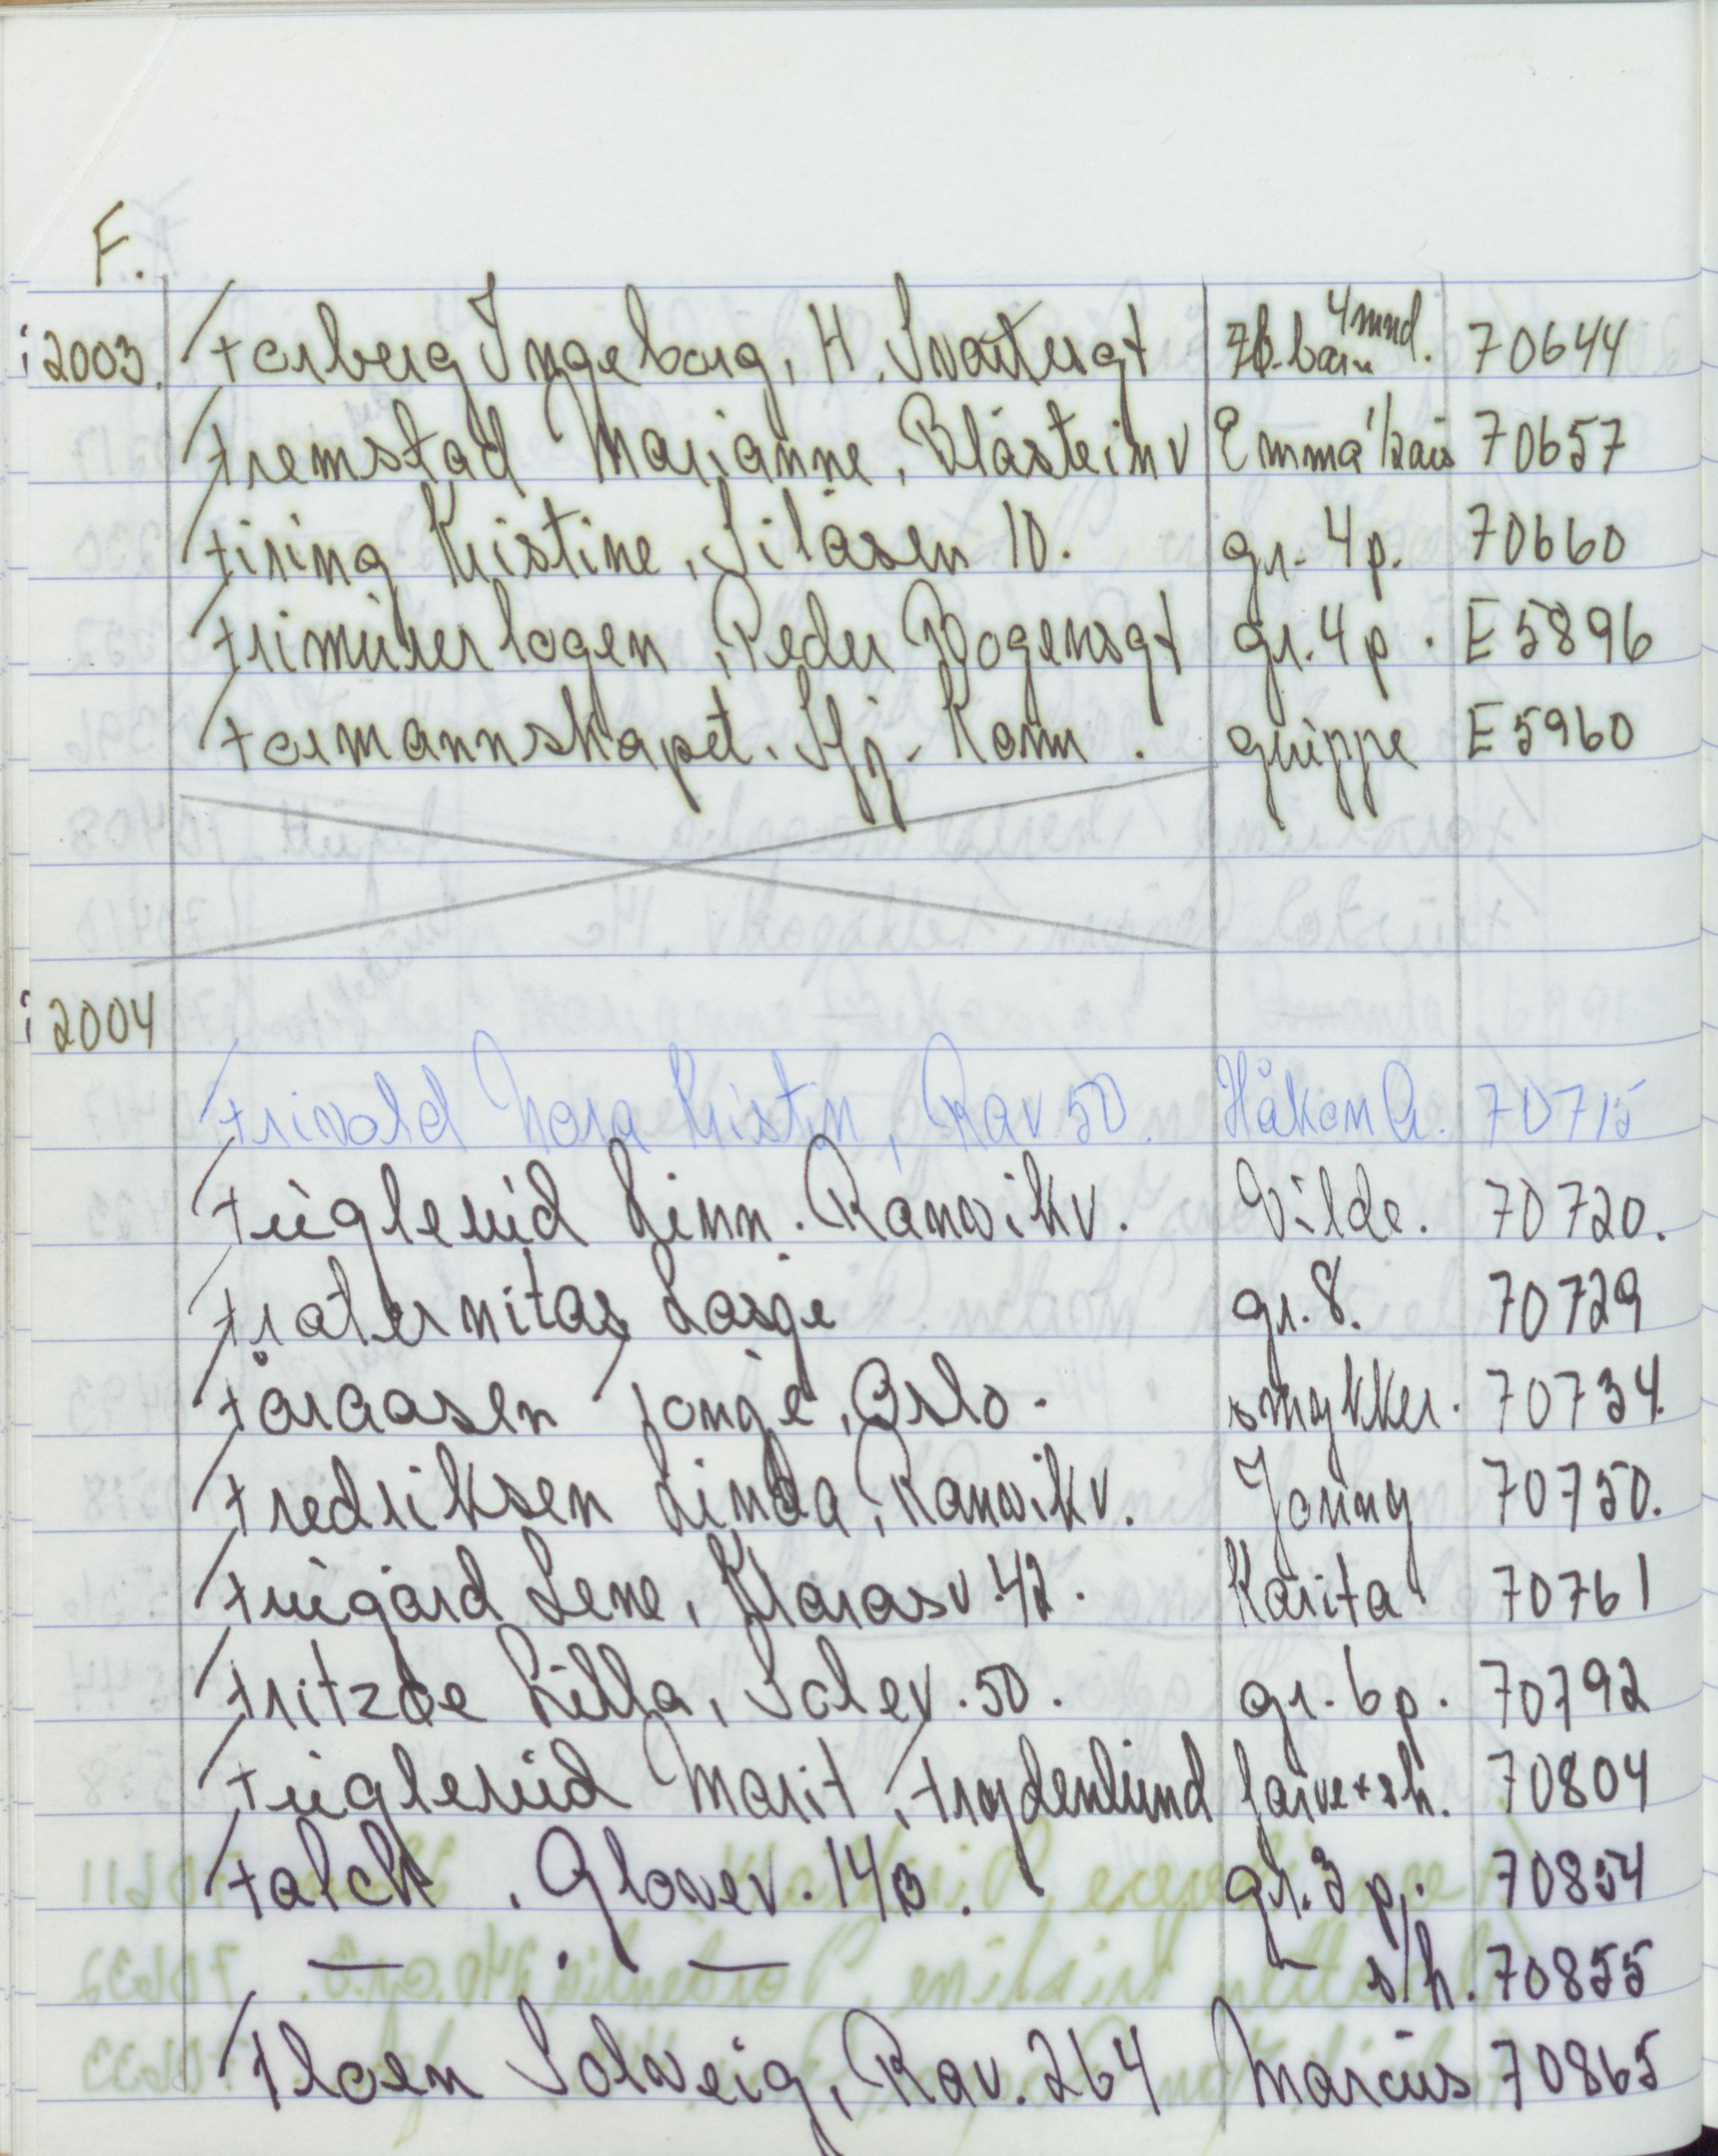 F.
2003. Forberg Ingeborg, H. Svartsrgt 7b.barn 4mnd. 70644
Fremstad Marianne, Blåsteinv Emma 70657
Firing Kristine, Liåsen 10. gr. 4p. 70660
Frimürerlogen, Peder Bogensgt gr. 4p. E5896
Formannskapet. Sfj. Komm. grüppe E5960
2004
Frivold Nora Kristin, Rav. 50. Håkon A. 70715
Füglerüd Linn. Ranvikv. Vilde. 70720.
Fraternitas Losje gr. 8. 70729
Fåraasen Tonje, Oslo. smykker. 70734.
Fredriksen Linda, Ranvikv. Jonny 70750.
Frügård Lene, Klarasv 42. Karita 70761
Fritzöe Lilla, Solev. 50. gr. 6p. 70792
Füglerüd Marit, Frydenlünd farve+sh. 70804
Falck, Glosev. 14B. gr. 3p. 70854
— . — — s/h. 70855
Floen Solveig, Rav. 264 Marcüs 70865